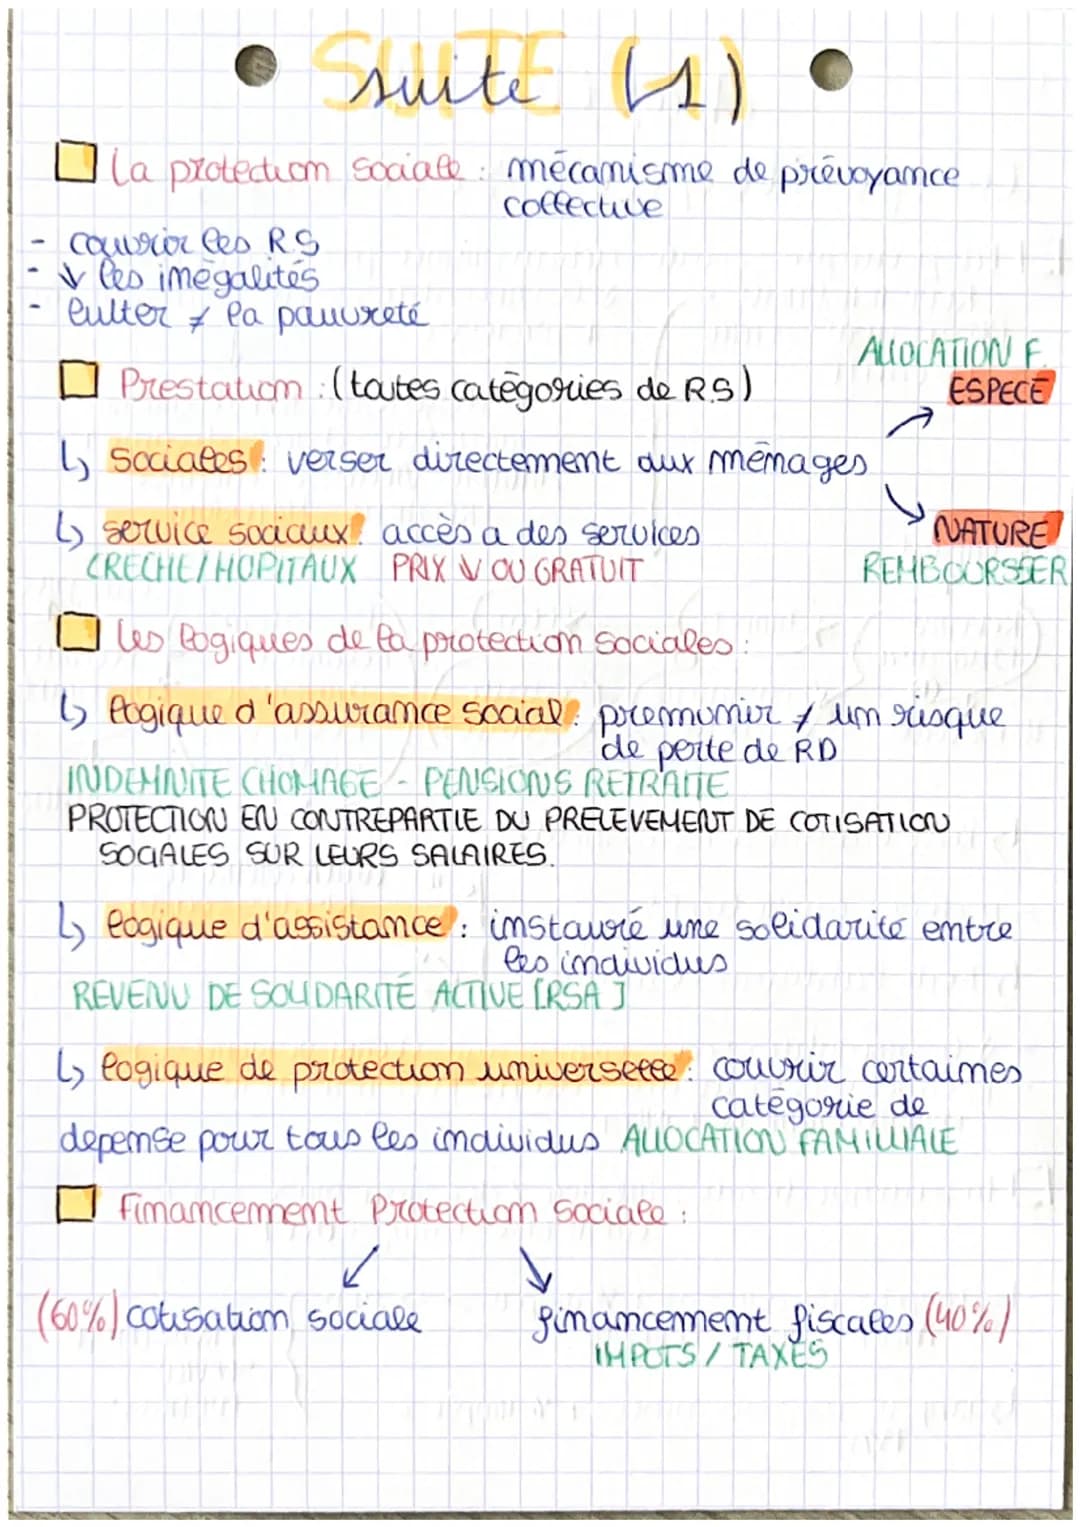 SUITE
suite (1)
La protection Sociale : mécanisme de prévoyance
collective
- couvrir les RS
- ↓ les inégalités
- lutter ≠ la pauvreté
ALLOCATION F.
Prestation : (toutes catégories de R.S) ESPECE
↳ Sociales : verser directement aux ménages
↳ service sociaux : accès a des services NATURE
CRECHE / HOPITAUX PRIX ↓ OU GRATUIT REMBOURSSER
Les logiques de la protection Sociales :
↳ logique d'assurance social : premunir ≠ un risque
de perte de RD
INDEMNITE CHOMAGE - PENSIONS RETRAITE
PROTECTION EN CONTREPARTIE DU PRELEVEMENT DE COTISATION
SOCIALES SUR LEURS SALAIRES.
↳ logique d'assistance : instauré une solidarité entre
les individus
REVENU DE SOLIDARITÉ ACTIVE [RSA]
↳ logique de protection universelle : couvrir certaines
catégorie de
depense pour tous les individus ALLOCATION FAMILLIALE
Financement Protection Sociale :
(60%) cotisation sociale financement fiscales (40%)
IMPOTS / TAXES